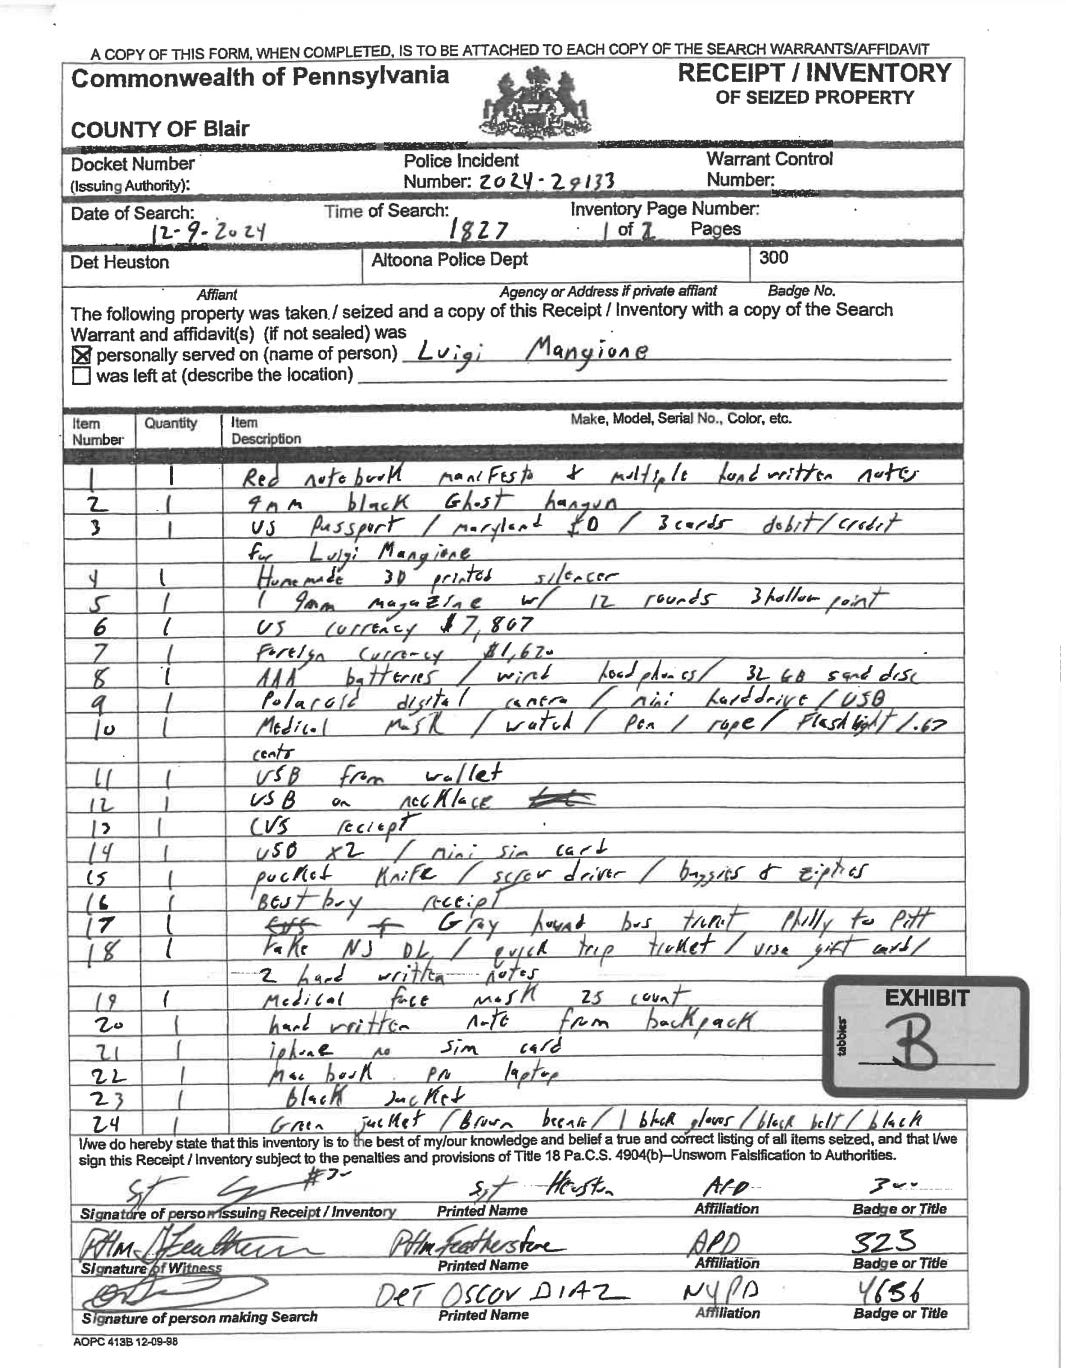 A COPY OF THIS FORM, WHEN COMPLETED, IS TO BE ATTACHED TO EACH COPY OF THE SEARCH WARRANTS/AFFIDAVIT
Commonwealth of Pennsylvania
RECEIPT / INVENTORY
OF SEIZED PROPERTY
COUNTY OF Blair
Docket Number
(Issuing Authority):
Police Incident
Number: 2024-29133
Warrant Control
Number:
Date of Search:
12-9-2024
Time of Search:
1827
Inventory Page Number:
1 of 2 Pages
Det Heuston
Altoona Police Dept
300
Affiant
Agency or Address if private affiant
Badge No.
The following property was taken / seized and a copy of this Receipt / Inventory with a copy of the Search
Warrant and affidavit(s) (if not sealed) was
☒ personally served on (name of person) Luigi Mangione
☐ was left at (describe the location)
Item Number
Quantity
Item Description
Make, Model, Serial No., Color, etc.
1 1 Red notebook manifesto & multiple hand written notes
2 1 9mm black Ghost hangun
3 1 US Passport / maryland ID / 3 cards debit/credit
for Luigi Mangione
4 1 Homemade 3D printed silencer
5 1 1 9mm magazine w/ 12 rounds 3 hollow point
6 1 US currency $7,807
7 1 Foreign Currency $1,620
8 1 AAA batteries / wind headphones / 32 GB sand disc
9 1 Polaroid digital camera / mini harddrive / USB
10 1 Medical mask / watch / pen / rope / Flashlight / .62
cents
11 1 USB from wallet
12 1 USB on necklace
13 1 CVS reciept
14 1 USB x2 / mini sim card
15 1 pocket Knife / screw driver / baggies & zipties
16 1 Best buy receipt
17 1 Gray hound bus ticket Philly to Pitt
18 1 Fake NJ DL / quick trip ticket / visa gift card /
2 hand written notes
19 1 Medical face mask 25 count
20 1 hand written note from backpack
21 1 iphone no sim card
22 1 Mac book pro laptop
23 1 black Jacket
24 1 Green jacket / Brown beenie / 1 black gloves / black belt / black
EXHIBIT
B
tabbies
I/we do hereby state that this inventory is to the best of my/our knowledge and belief a true and correct listing of all items seized, and that I/we
sign this Receipt / Inventory subject to the penalties and provisions of Title 18 Pa.C.S. 4904(b)–Unsworn Falsification to Authorities.
Sgt Heuston APD 300
Signature of person issuing Receipt / Inventory Printed Name Affiliation Badge or Title
Ptlm Featherstone APD 323
Signature of Witness Printed Name Affiliation Badge or Title
DET OSCAR DIAZ NYPD 4656
Signature of person making Search Printed Name Affiliation Badge or Title
AOPC 413B 12-09-98